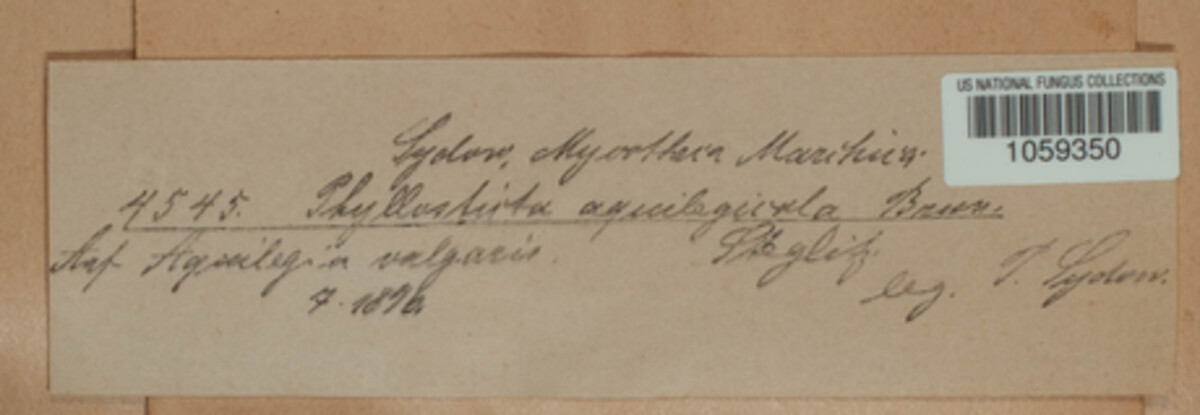 US NATIONAL FUNGUS COLLECTIONS
1059350
Sydow, Mycotheca Marchica.
4545. Phyllosticta aquilegicola Brun.
Auf Aquilegia vulgaris. Steglitz.
7. 1896 leg. P. Sydow.